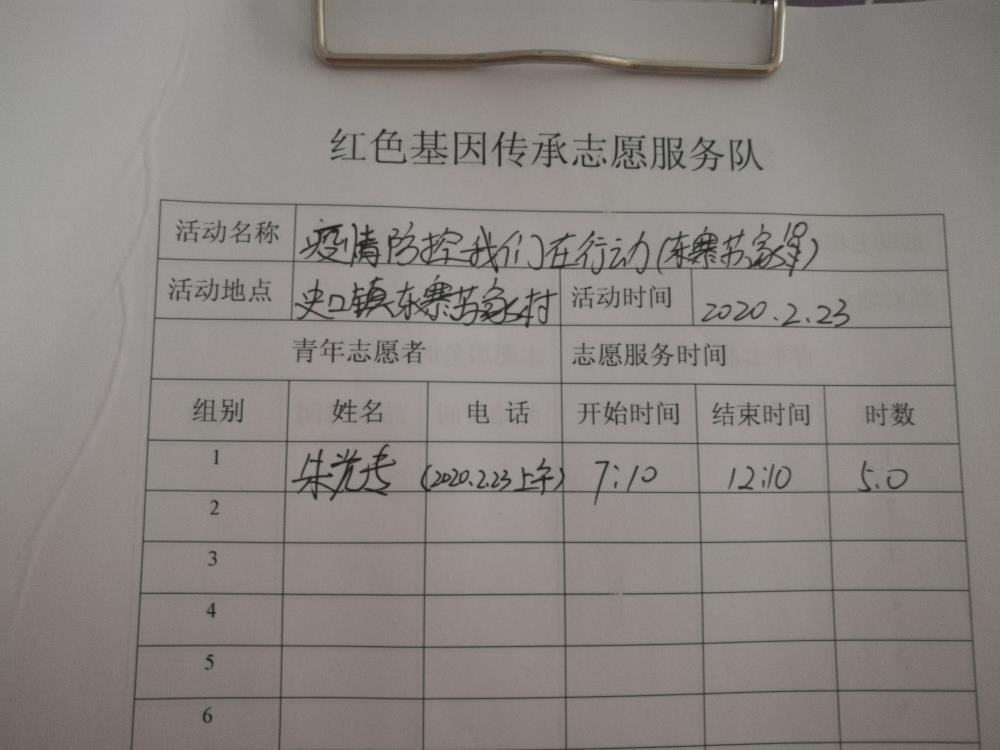 红色基因传承志愿服务队
活动名称 疫情防控我们在行动(东寨苏家
活动地点 史口镇东寨苏家村 活动时间 2020.2.23
青年志愿者 志愿服务时间
组别 姓名 电话 开始时间 结束时间 时数
1 朱 (2020.2.23上午) 7:10 12:10 5.0
2
3
4
5
6